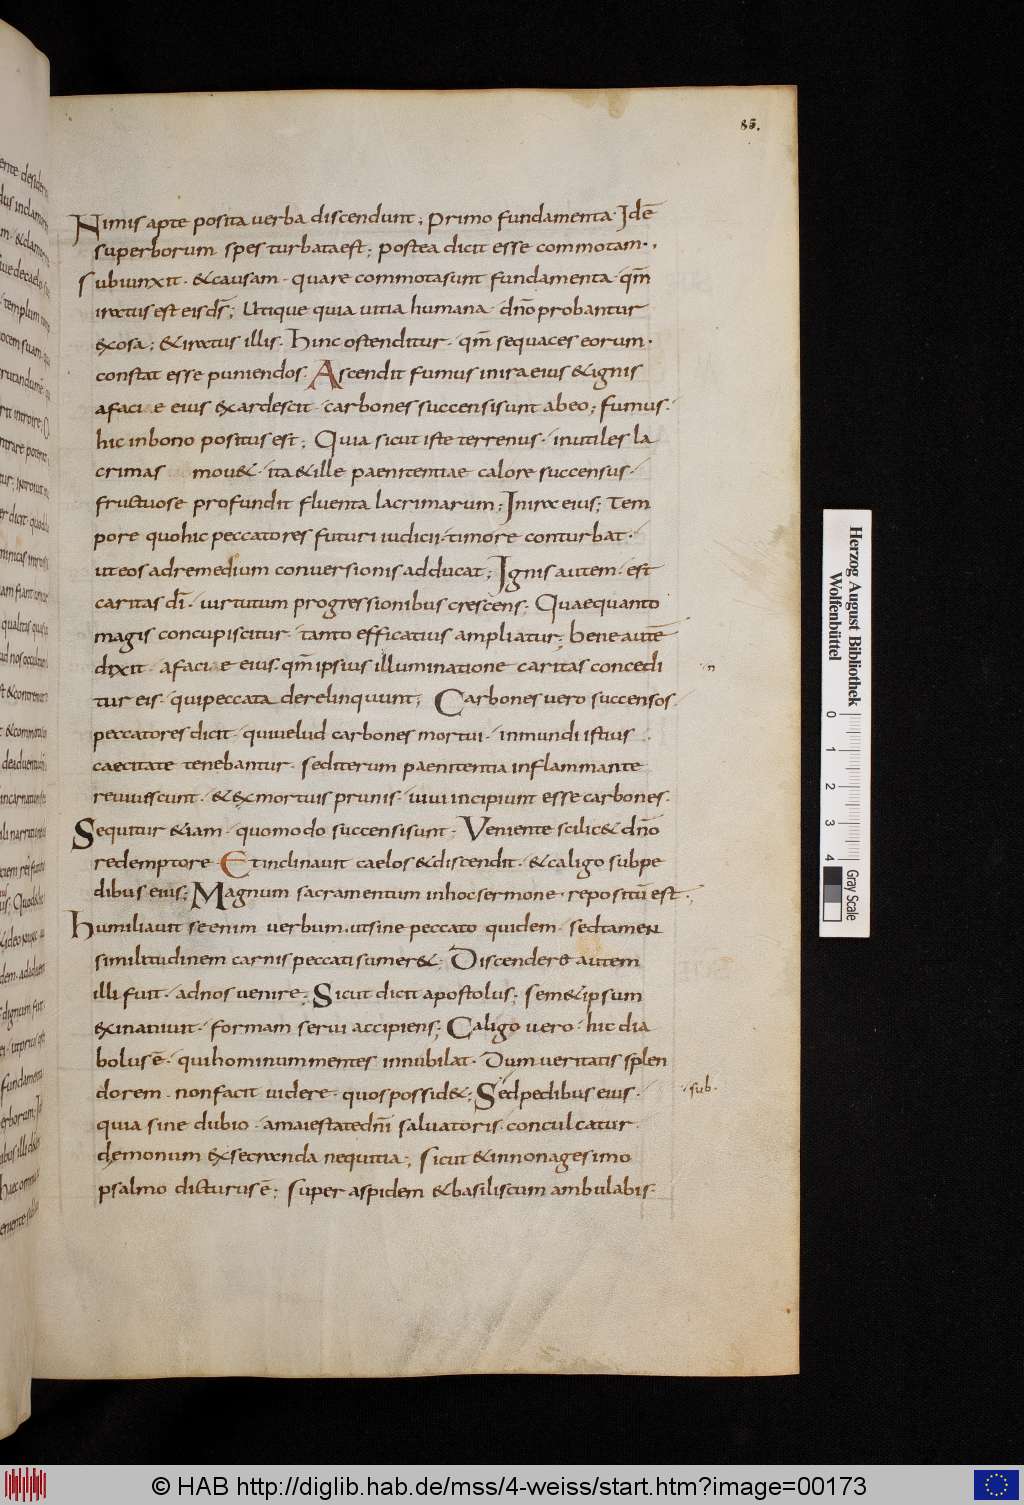 85.
Nimis apte posita uerba discendunt; primo fundamenta· Idē
superborum spes turbata est; postea dicit esse commotam·,
subiunxit· &causam· quare commota sunt fundamenta· qm̄
iratus est eis ds̄; Utique quia uitia humana· dn̄o probantur
exosa; &iratus illis· hinc ostenditur· qm̄ sequaces eorum·
constat esse puniendos· Ascendit fumus in ira eius &ignis
a faciae eius exardescit· carbones succensi sunt ab eo; fumus·
hic in bono positus est; Quia sicut iste terrenus· inutiles la
crimas mou&· ita &ille paenitentiae calore succensus·
fructuose profundit fluenta lacrimarum; In ira eius; Tem
pore quo hic peccatores futuri iudicii· timore conturbat·
ut eos ad remedium conuersionis adducat; Ignis autem· est
caritas dī· uirtutum progressionibus crescens; Quae quanto
magis concupiscitur· tanto efficatius ampliatur; bene autē
dixit· a faciae eius· qm̄ ipsius illuminatione caritas concedi
·n
tur eis· qui peccata derelinquunt; Carbones uero succensos·
peccatores dicit· qui uelud carbones mortui· inmundi istius
caecitate tenebantur· sed iterum paenitentia inflammante
reuiuiscunt· &ex mortuis prunis· uiui incipiunt esse carbones·
Sequitur &iam· quomodo succensi sunt· Veniente scilic& dn̄o
redemptore· Et inclinauit caelos &discendit· &caligo sub pe
dibus eius; Magnum sacramentum in hoc sermone· repositū est·
humiliauit se enim uerbum· ut sine peccato quidem· sed tamen
similitudinem carnis peccati sumer&· Discendere autem
illi fuit· ad nos uenire; Sicut dicit apostolus; sem&ipsum
exinaniuit· formam serui accipiens; Caligo uero· hic dia
bolus ē· qui hominum mentes innubilat· Dum ueritatis splen
dorem· non facit uidere· quos possid&; Sed pedibus eius·
·sub·
quia sine dubio· a maiestate dn̄i saluatoris· conculcatur·
dęmonum exsecranda nequitia; sicut &in nonagesimo
psalmo dicturus ē; super aspidem &basiliscum ambulabis·
Herzog August Bibliothek
Wolfenbüttel
0 1 2 3 4
Gray Scale
© HAB http://diglib.hab.de/mss/4-weiss/start.htm?image=00173